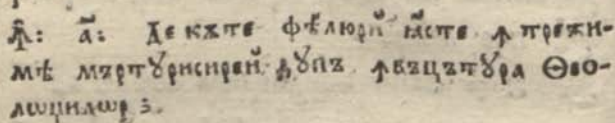 Ꙟ҃: а҃: Де кѫте фѣлюрй ꙗсте ꙟпрежи-
мѣ мъртꙋрисирей дꙋпъ ꙟвъцътꙋра Ѳео-
лѡџилѡр ;